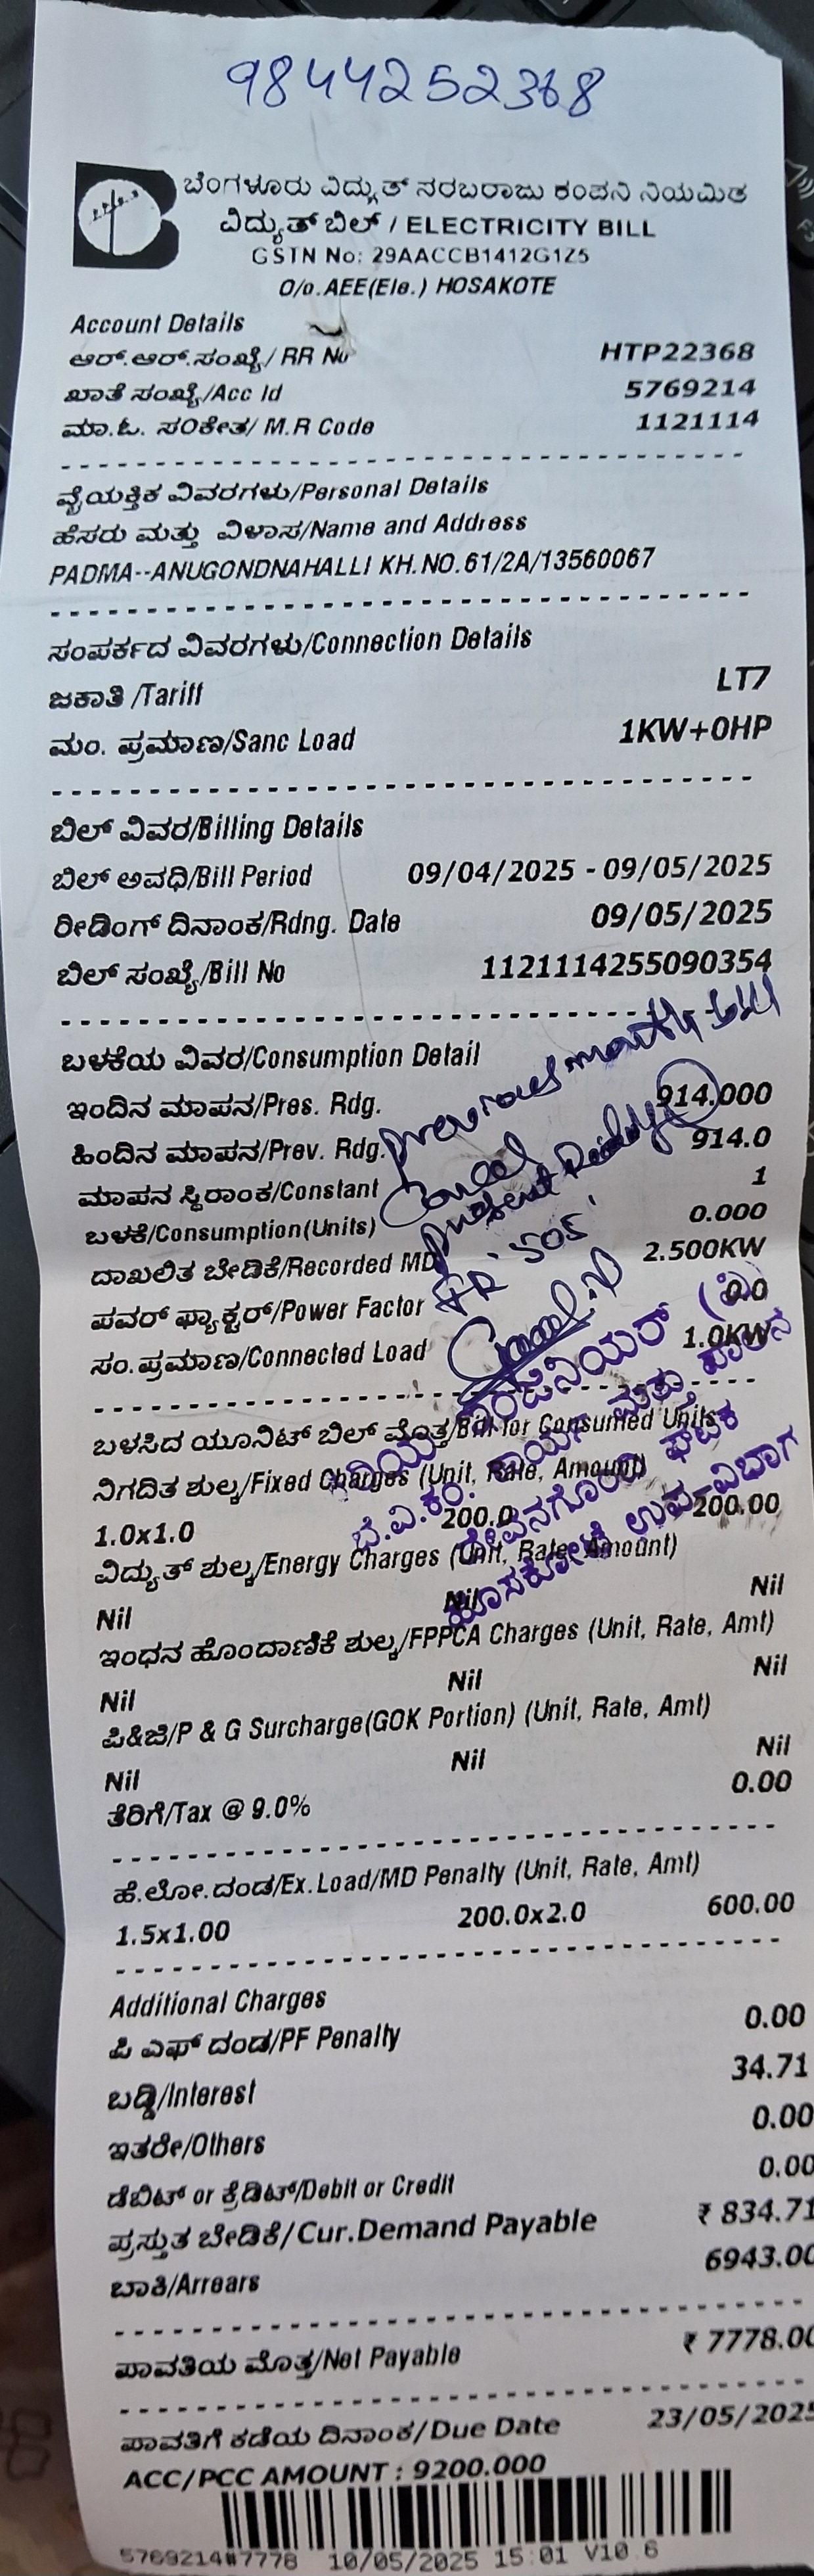 9844252368
ಬೆಂಗಳೂರು ವಿದ್ಯುತ್ ಸರಬರಾಜು ಕಂಪನಿ ನಿಯಮಿತ
ವಿದ್ಯುತ್ ಬಿಲ್ / ELECTRICITY BILL
GSTN No: 29AACCB1412G1Z5
O/o.AEE(Ele.) HOSAKOTE
Account Details
ಆರ್.ಆರ್.ಸಂಖ್ಯೆ/ RR No HTP22368
ಖಾತೆ ಸಂಖ್ಯೆ/Acc Id 5769214
ಮಾ.ಓ. ಸಂಕೇತ/ M.R Code 1121114
ವೈಯಕ್ತಿಕ ವಿವರಗಳು/Personal Details
ಹೆಸರು ಮತ್ತು ವಿಳಾಸ/Name and Address
PADMA--ANUGONDNAHALLI KH.NO.61/2A/13560067
ಸಂಪರ್ಕದ ವಿವರಗಳು/Connection Details
ಜಕಾತಿ /Tariff LT7
ಮಂ. ಪ್ರಮಾಣ/Sanc Load 1KW+0HP
ಬಿಲ್ ವಿವರ/Billing Details
ಬಿಲ್ ಅವಧಿ/Bill Period 09/04/2025 - 09/05/2025
ರೀಡಿಂಗ್ ದಿನಾಂಕ/Rdng. Date 09/05/2025
ಬಿಲ್ ಸಂಖ್ಯೆ/Bill No 1121114255090354
ಬಳಕೆಯ ವಿವರ/Consumption Detail
previous month bill
ಇಂದಿನ ಮಾಪನ/Pres. Rdg. 914.000
ಹಿಂದಿನ ಮಾಪನ/Prev. Rdg. 914.0
ಮಾಪನ ಸ್ಥಿರಾಂಕ/Constant 1
ಬಳಕೆ/Consumption(Units) 0.000
ದಾಖಲಿತ ಬೇಡಿಕೆ/Recorded MD 2.500KW
ಪವರ್ ಫ್ಯಾಕ್ಟರ್/Power Factor 0.0
ಸಂ.ಪ್ರಮಾಣ/Connected Load 1.0KW
Cancel
present
FR '505'
ಇಂಜಿನಿಯರ್ (ವಿ)
ಬೆ.ವಿ.ಕಂ. ಕಾರ್ಯ ಮತ್ತು ಪಾಲನ
ಘಟಕ
ಹೊಸಕೋಟೆ ಉಪ-ವಿಭಾಗ
ಬಳಸಿದ ಯೂನಿಟ್ ಬಿಲ್ ಮೊತ್ತ/Bill for Consumed Units
ನಿಗದಿತ ಶುಲ್ಕ/Fixed Charges (Unit, Rate, Amount)
1.0x1.0 200.0 200.00
ವಿದ್ಯುತ್ ಶುಲ್ಕ/Energy Charges (Unit, Rate, Amount)
Nil Nil Nil
ಇಂಧನ ಹೊಂದಾಣಿಕೆ ಶುಲ್ಕ/FPPCA Charges (Unit, Rate, Amt)
Nil Nil Nil
ಪಿ&ಜಿ/P & G Surcharge(GOK Portion) (Unit, Rate, Amt)
Nil Nil Nil
ತೆರಿಗೆ/Tax @ 9.0% 0.00
ಹೆ.ಲೋ.ದಂಡ/Ex.Load/MD Penalty (Unit, Rate, Amt)
1.5x1.00 200.0x2.0 600.00
Additional Charges
ಪಿ ಎಫ್ ದಂಡ/PF Penalty 0.00
ಬಡ್ಡಿ/Interest 34.71
ಇತರೇ/Others 0.00
ಡೆಬಿಟ್ or ಕ್ರೆಡಿಟ್/Debit or Credit 0.00
ಪ್ರಸ್ತುತ ಬೇಡಿಕೆ/Cur.Demand Payable ₹ 834.71
ಬಾಕಿ/Arrears 6943.00
ಪಾವತಿಯ ಮೊತ್ತ/Net Payable ₹ 7778.00
ಪಾವತಿಗೆ ಕಡೆಯ ದಿನಾಂಕ/Due Date 23/05/2025
ACC/PCC AMOUNT : 9200.000
5769214#7778 10/05/2025 15:01 V10.6